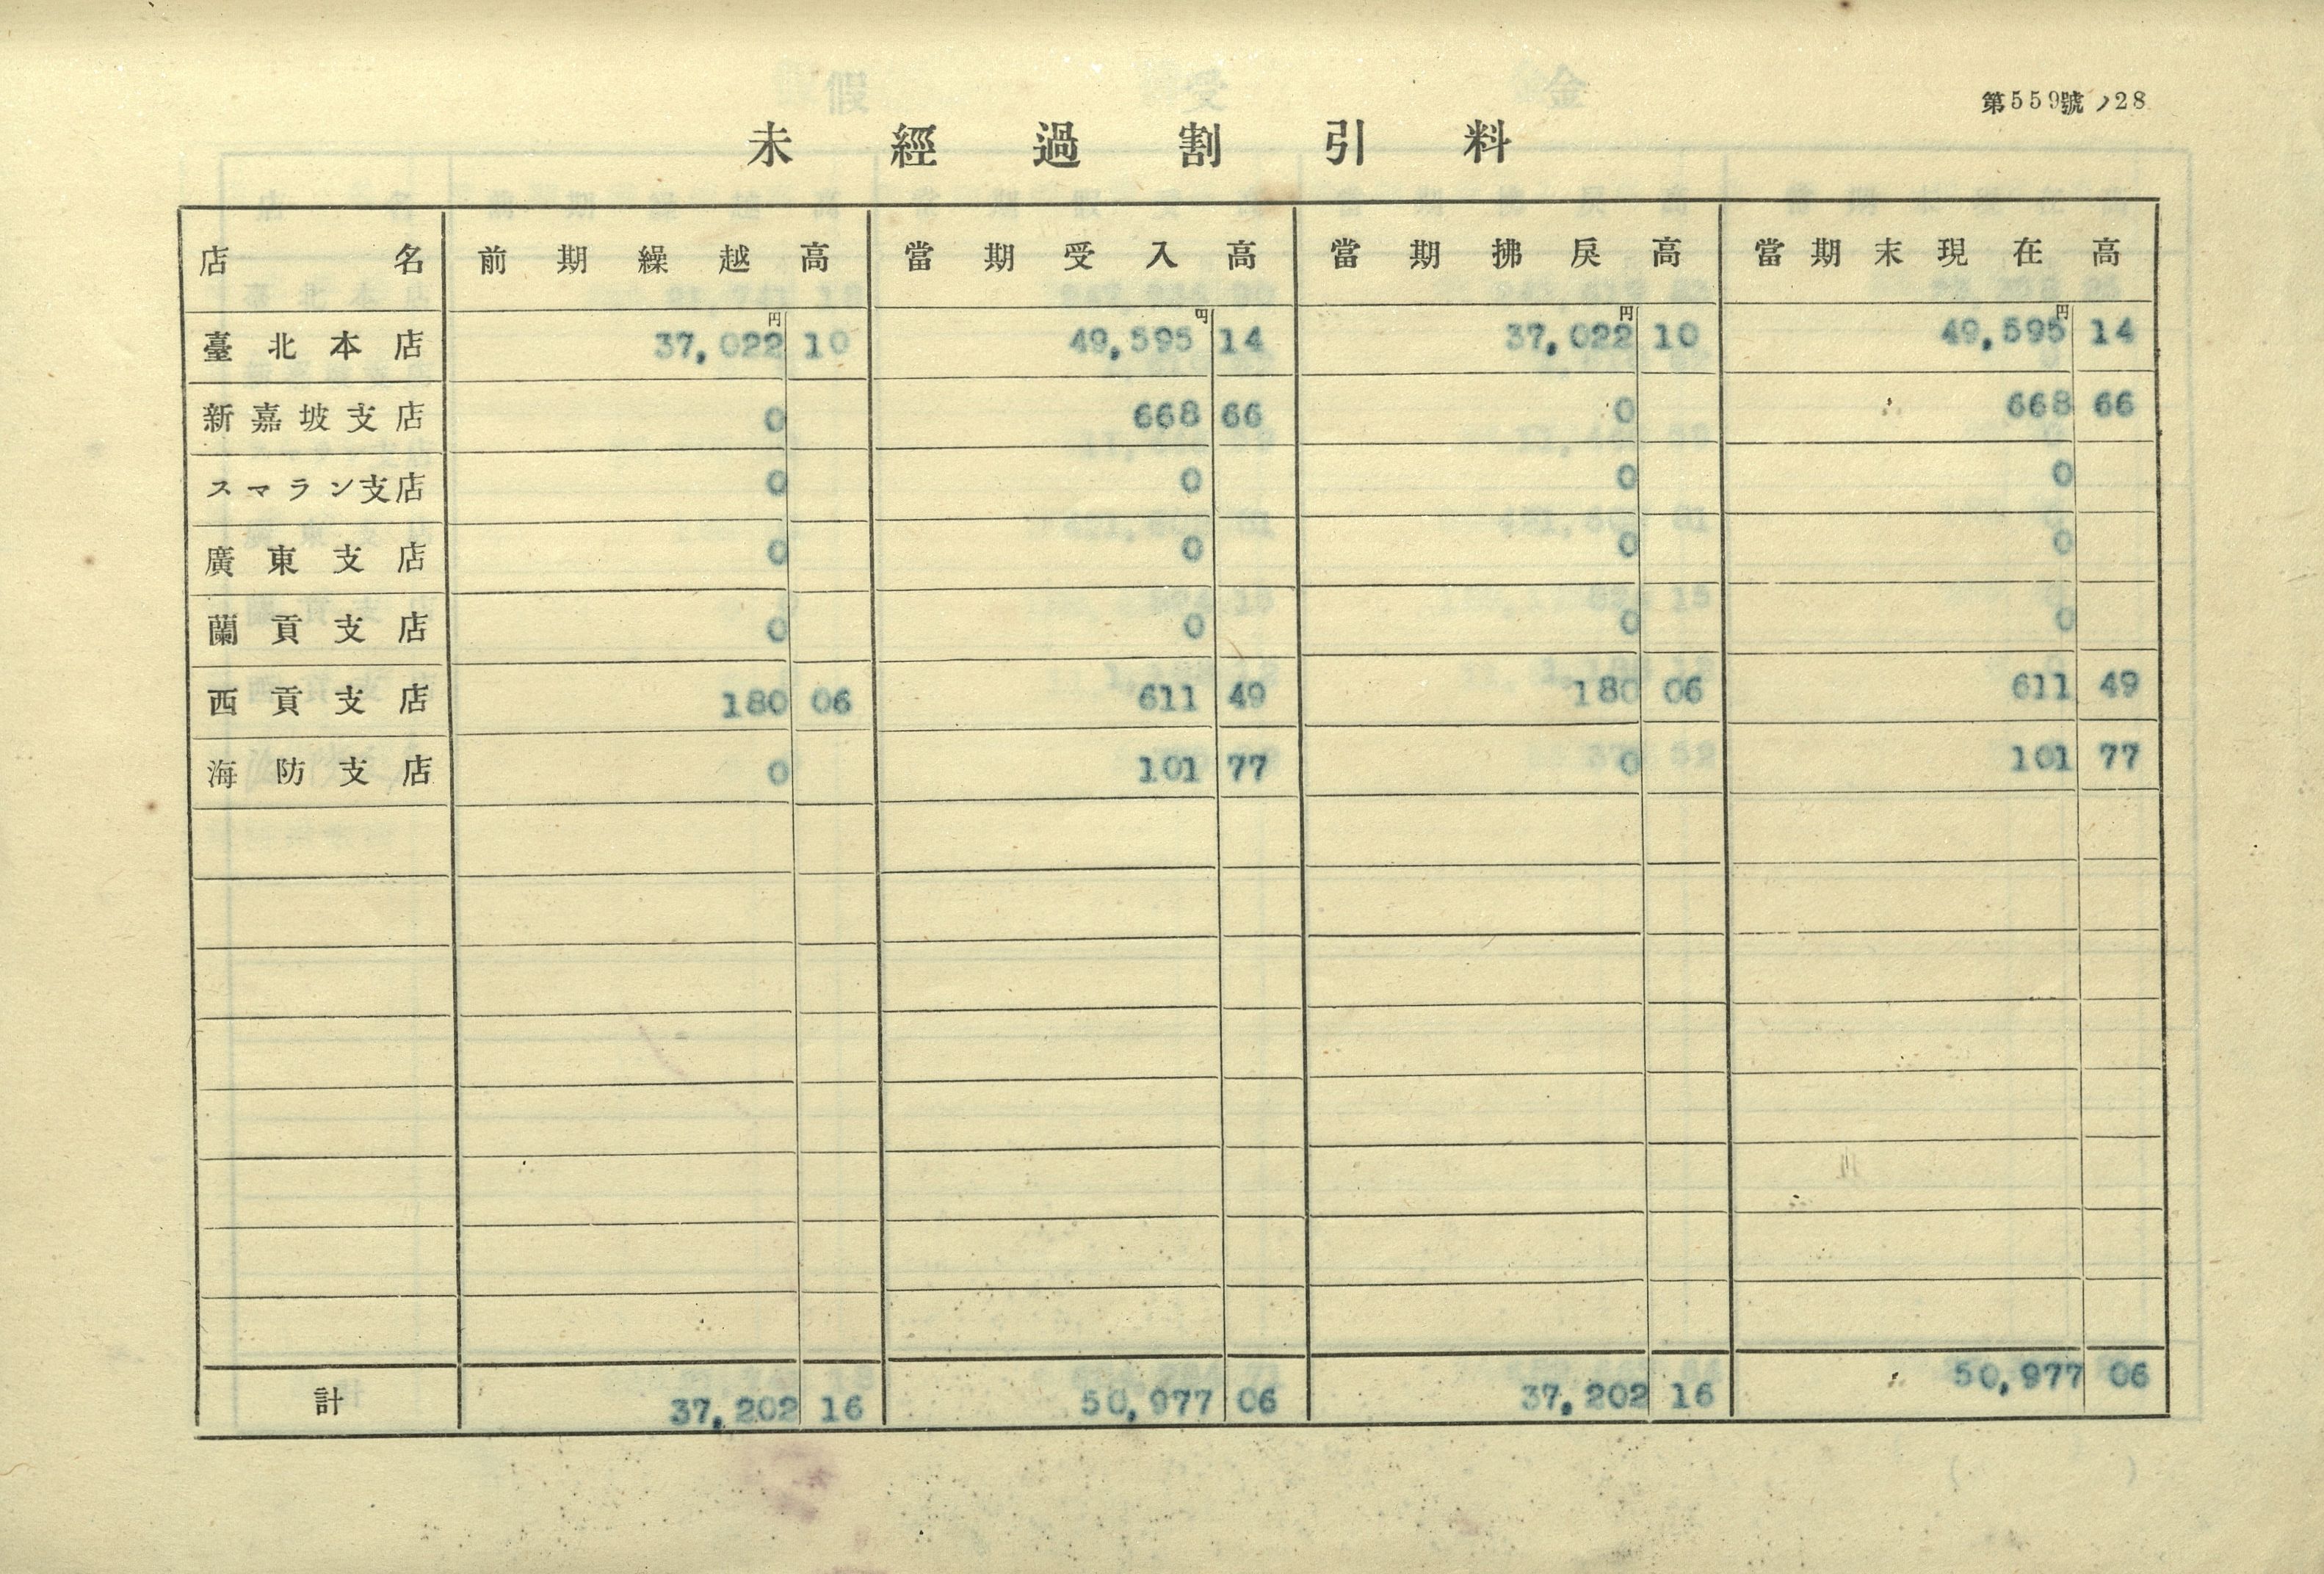 第559號ノ28
未經過割引料
店名 前期繰越高 當期受入高 當期拂戾高 當期末現在高
臺北本店 37,022円 10 49,595円 14 37,022円 10 49,595円 14
新嘉坡支店 0 668 66 0 668 66
スマラン支店 0 0 0 0
廣東支店 0 0 0 0
蘭貢支店 0 0 0 0
西貢支店 180 06 611 49 180 06 611 49
海防支店 0 101 77 0 101 77
計 37,202 16 50,977 06 37,202 16 50,977 06